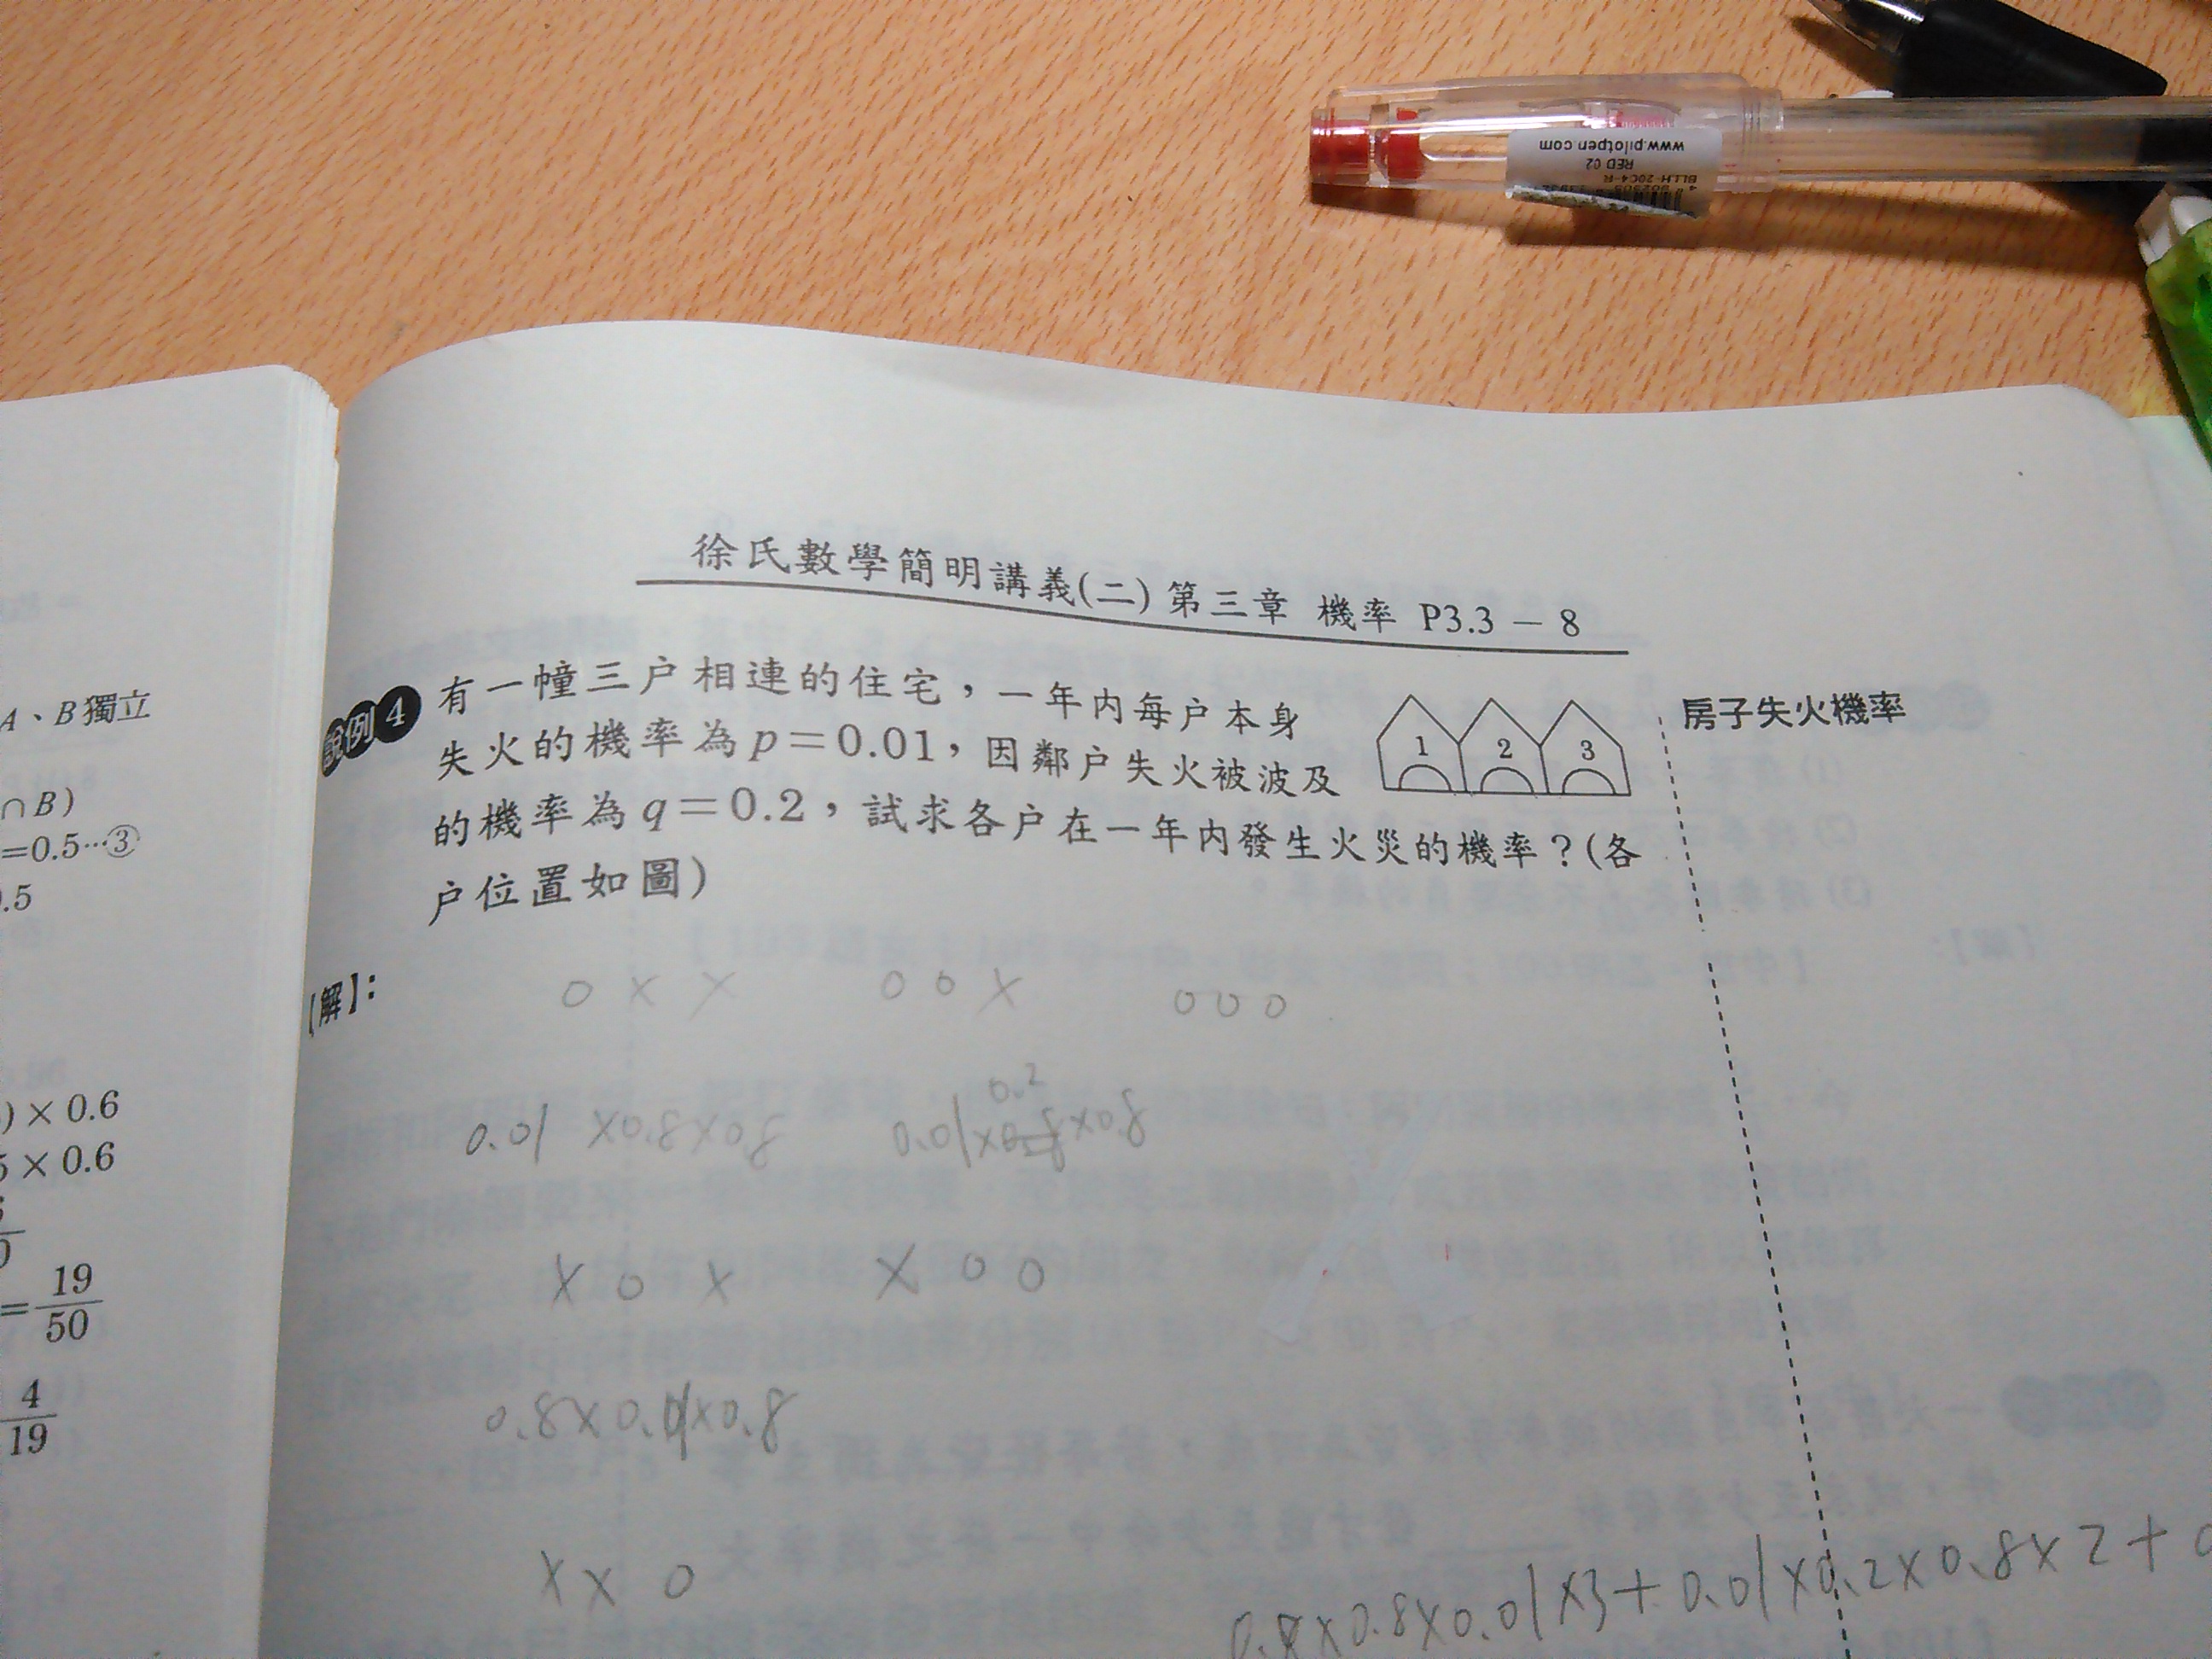 www.pilotpen.com
RED 02
BLLH-20C4-R
徐氏數學簡明講義(二) 第三章 機率 P3.3 - 8
A、B獨立
∩B)
=0.5…③
.5
) × 0.6
5 × 0.6
= 19/50
4/19
說例4 有一幢三户相連的住宅，一年內每户本身
失火的機率為p=0.01，因鄰户失火被波及
的機率為q=0.2，試求各户在一年內發生火災的機率？(各
户位置如圖)
1 2 3
房子失火機率
【解】：
0 X X 0 0 X 0 0 0
0.2
0.01 X0.8X0.8 0.01X X0.8
X 0 X X 0 0
0.8X0.01X0.8
X X 0
0.8X0.8X0.01X3+0.01X0.2X0.8X2+0